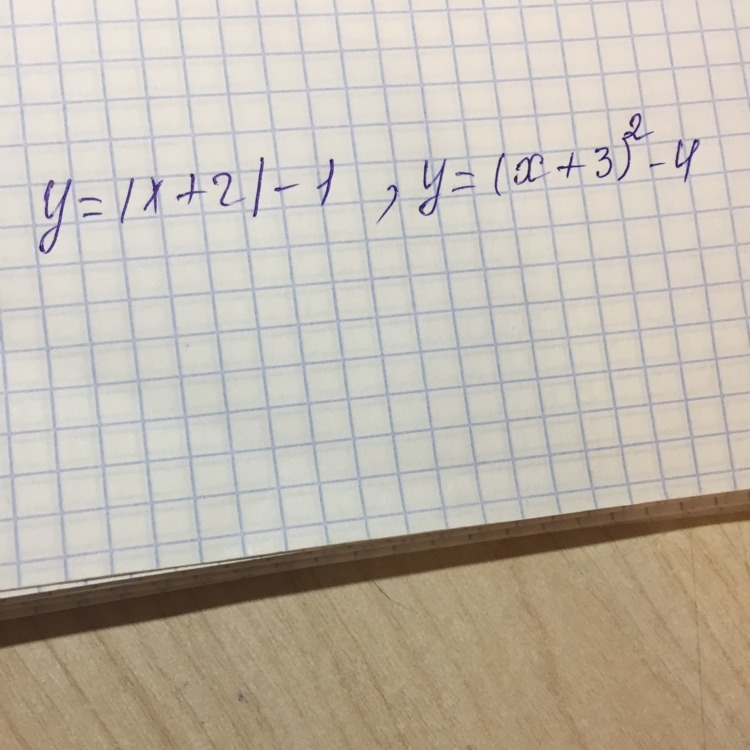 y = |x + 2| - 1 , y = (x + 3)² - 4